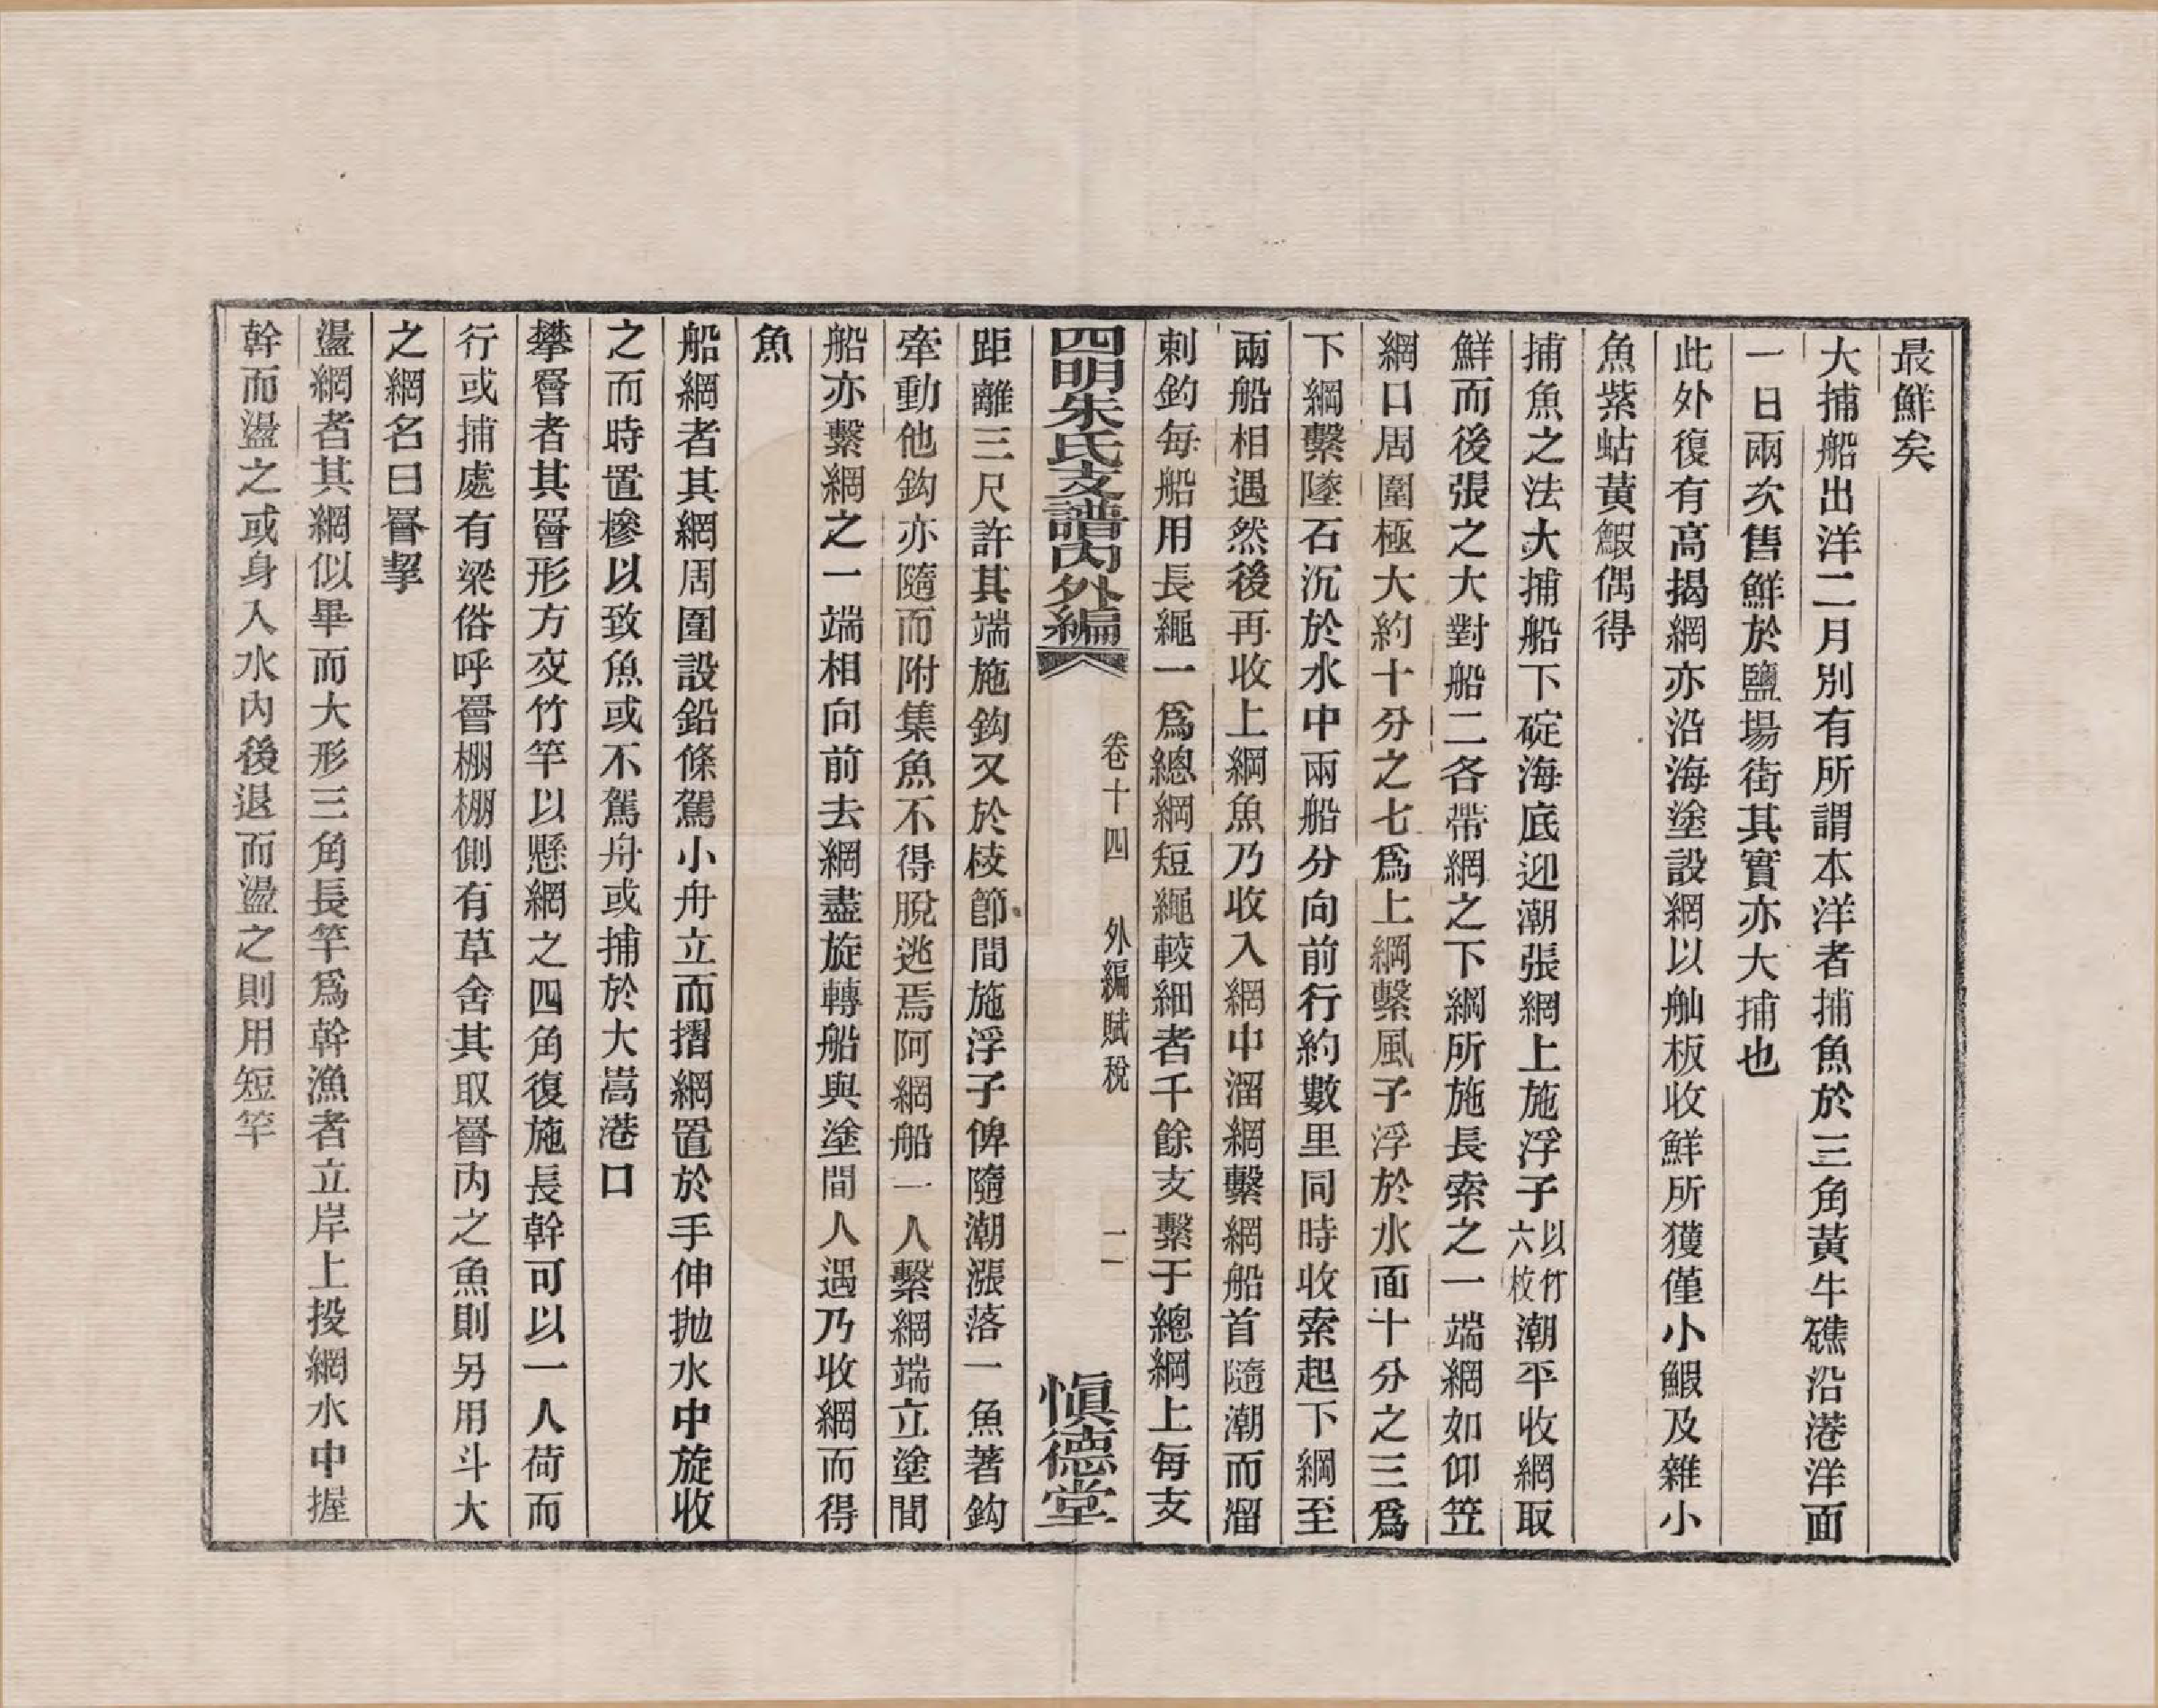 最鮮矣
大捕船出洋二月別有所謂本洋者捕魚於三角黃牛礁沿港洋面
一日兩次售鮮於鹽場街其實亦大捕也
此外復有高揭網亦沿海塗設網以舢板收鮮所獲僅小鰕及雜小
魚紫蛄黃鰕偶得
捕魚之法大捕船下碇海底迎潮張網上施浮子以竹六枚潮平收網取
鮮而後張之大對船二各帶網之下綱所施長索之一端網如仰笠
網口周圍極大約十分之七爲上綱繫風子浮於水面十分之三爲
下綱繫墜石沉於水中兩船分向前行約數里同時收索起下綱至
兩船相遇然後再收上綱魚乃收入網中溜網繫網船首隨潮而溜
刺釣每船用長繩一爲總綱短繩較細者千餘支繫于總綱上每支
四明朱氏支譜內外編 卷十四 外編賦稅 二 愼德堂
距離三尺許其端施鈎又於枝節間施浮子俾隨潮漲落一魚著鈎
牽動他鈎亦隨而附集魚不得脫逃焉阿網船一人繫網端立塗間
船亦繫網之一端相向前去網盡旋轉船與塗間人遇乃收網而得
魚
船網者其網周圍設鉛條駕小舟立而摺網置於手伸拋水中旋收
之而時置椮以致魚或不駕舟或捕於大嵩港口
攀罾者其罾形方交竹竿以懸網之四角復施長幹可以一人荷而
行或捕處有梁俗呼罾棚棚側有草舍其取罾內之魚則另用斗大
之網名曰罾挈
盪網者其網似畢而大形三角長竿爲幹漁者立岸上投網水中握
幹而盪之或身入水內後退而盪之則用短竿